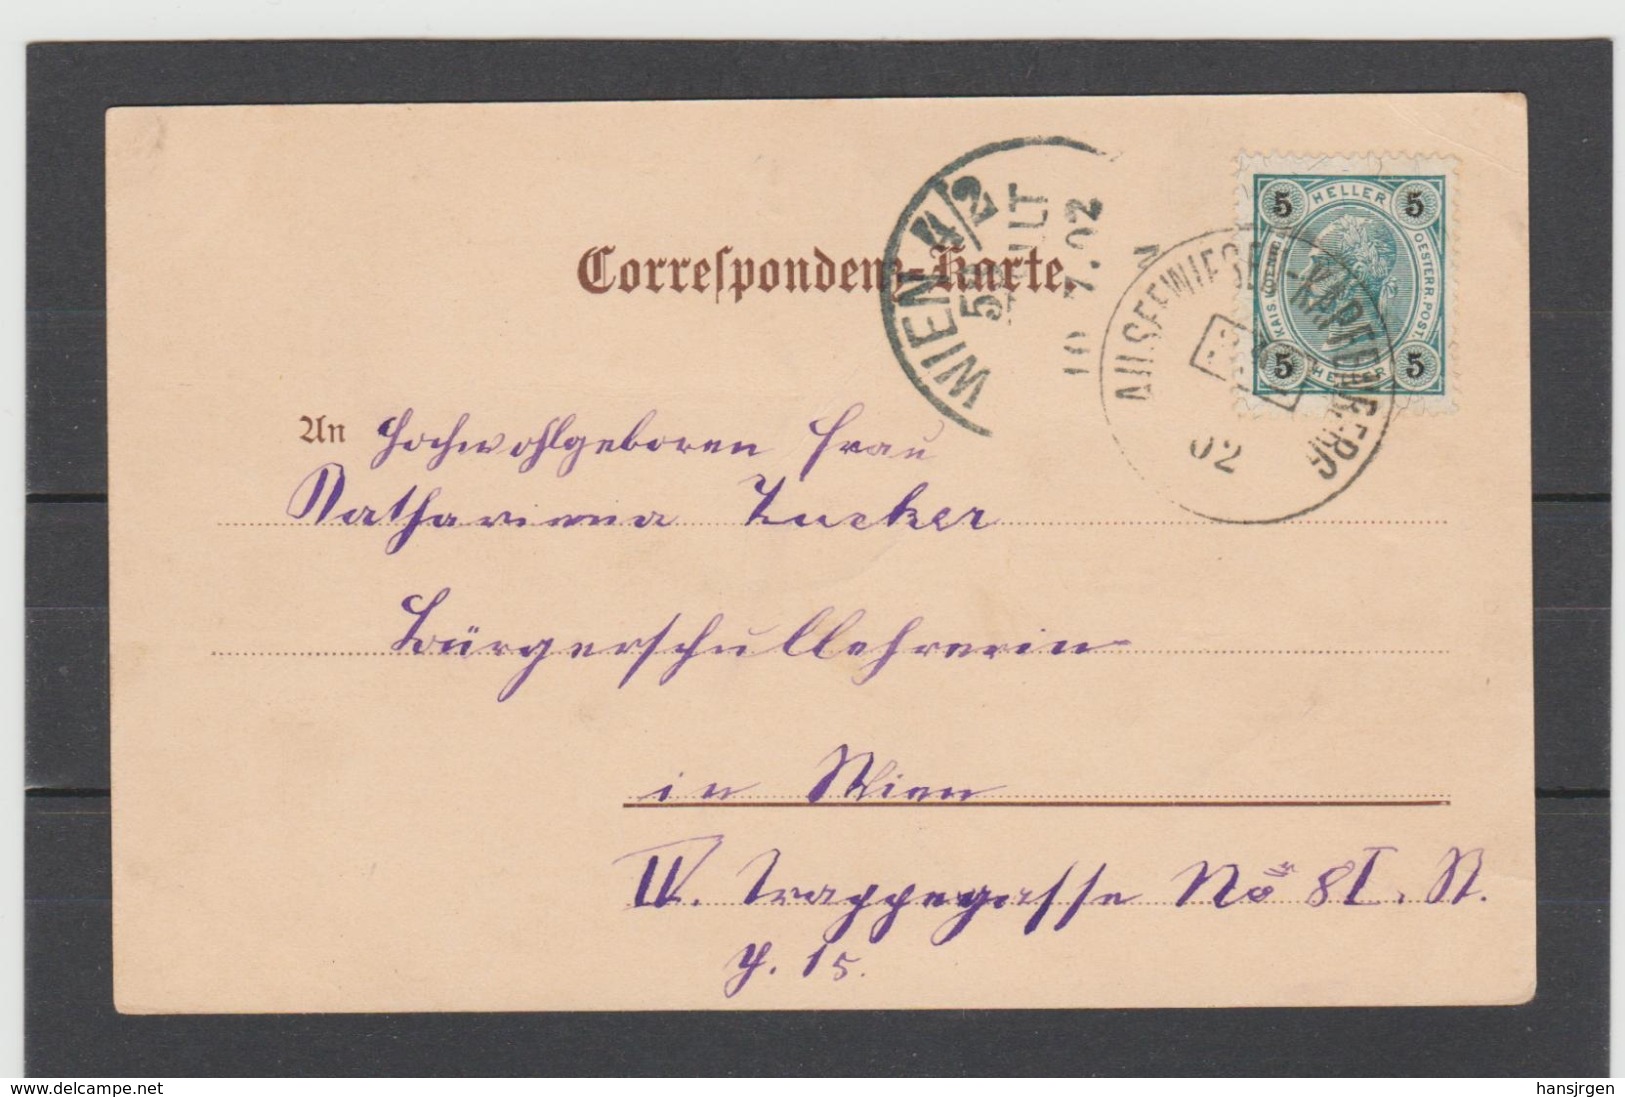 Correspondenz-Karte.
WIEN 4/2
BESTELLT
10 7.02
5 HELLER 5
KAIS. KÖNIGL. OESTERR. POST.
5 HELLER 5
02
An Hochwohlgeboren Frau
Katharinna Zucker
Bürgerschullehrerin
in Wien
IV. Trappegasse No 8 I. St.
T. 15.
www.delcampe.net
hansjrgen